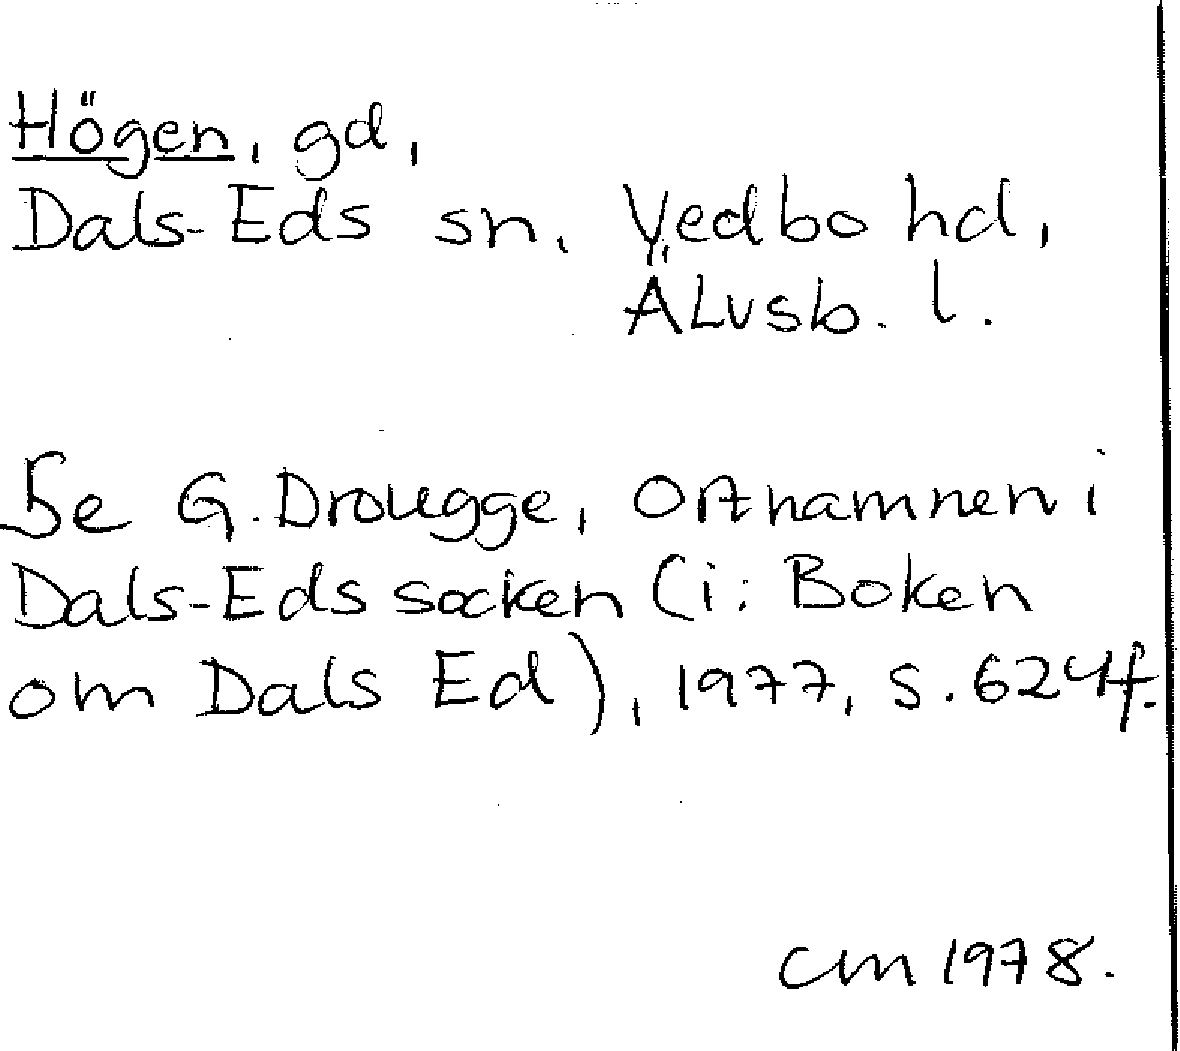 Högen, gd,
Dals-Eds sn, Vedbo hd,
Älvsb. l.
Se G. Drougge, Ortnamnen i
Dals-Eds socken (i: Boken
om Dals Ed), 1977, s. 624f.
CM 1978.